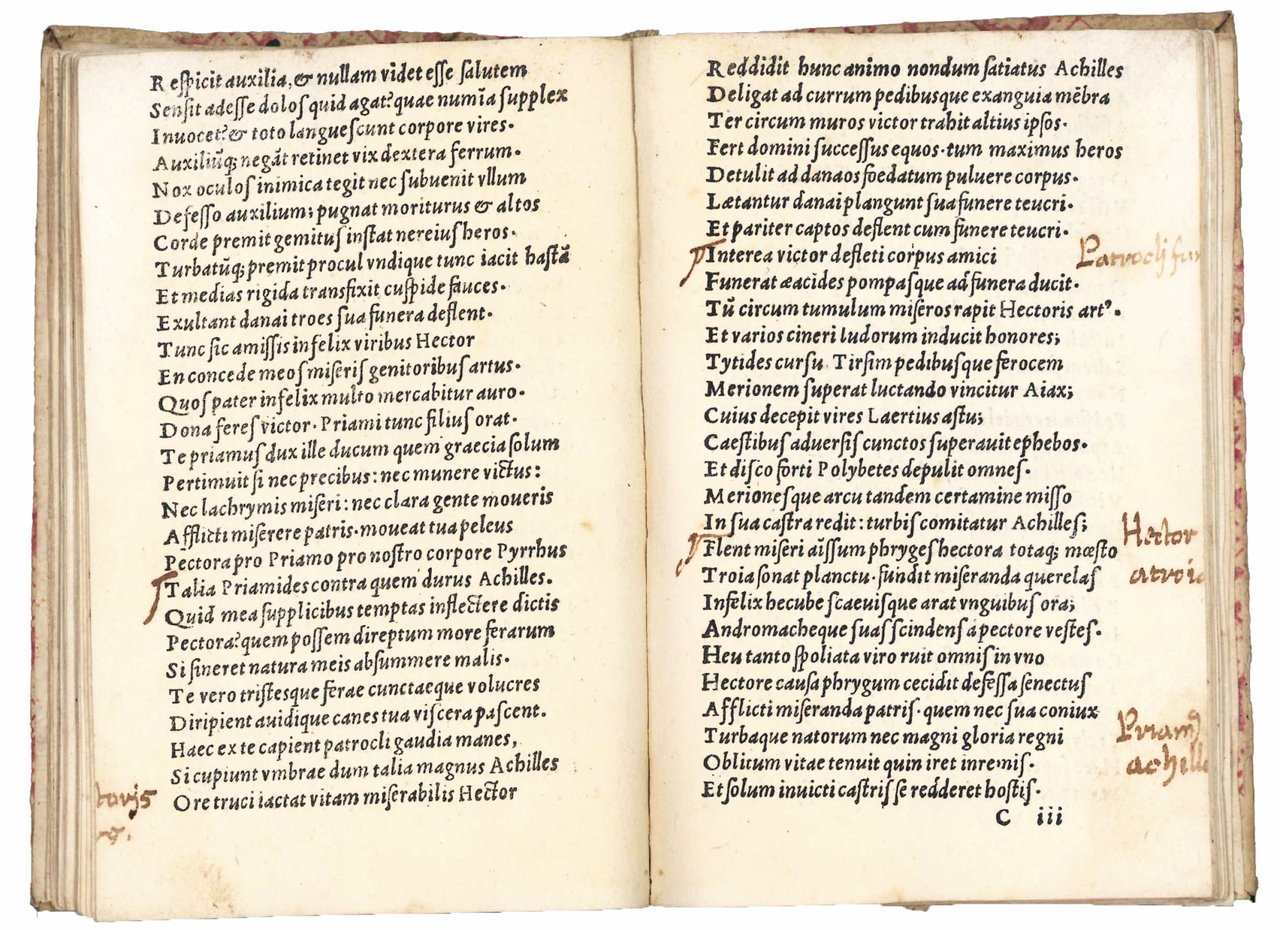 Respicit auxilia, & nullam videt esse salutem
Sensit adesse dolos quid agat? quae numīa supplex
Inuocet? & toto languescunt corpore vires.
Auxiliūq; negāt retinet vix dextera ferrum.
Nox oculos inimica tegit nec subuenit vllum
Defesso auxilium; pugnat moriturus & altos
Corde premit gemitus instat nereius heros.
Turbatūq; premit procul vndique tunc iacit hastā
Et medias rigida transfixit cuspide fauces.
Exultant danai troes sua funera deflent.
Tunc sic amissis infelix viribus Hector
En concede meos miseris genitoribus artus.
Quos pater infelix multo mercabitur auro.
Dona feres victor. Priami tunc filius orat.
Te priamus dux ille ducum quem graecia solum
Pertimuit si nec precibus: nec munere victus:
Nec lachrymis miseri: nec clara gente moueris
Afflicti miserere patris. moueat tua peleus
Pectora pro Priamo pro nostro corpore Pyrrhus
Talia Priamides contra quem durus Achilles.
Quid mea supplicibus temptas inflectere dictis
Pectora? quem possem direptum more ferarum
Si sineret natura meis absummere malis.
Te vero tristesque ferae cunctaeque volucres
Diripient auidique canes tua viscera pascent.
Haec ex te capient patrocli gaudia manes,
Si cupiunt vmbrae dum talia magnus Achilles
Ore truci iactat vitam miserabilis Hector
Reddidit hunc animo nondum satiatus Achilles
Deligat ad currum pedibusque exanguia mēbra
Ter circum muros victor trahit altius ipsos.
Fert domini successus equos. tum maximus heros
Detulit ad danaos foedatum puluere corpus.
Lætantur danai plangunt sua funere teucri.
Et pariter captos deflent cum funere teucri.
Interea victor defleti corpus amici
Funerat æacides pompasque ad funera ducit.
Tū circum tumulum miseros rapit Hectoris artꝰ.
Et varios cineri ludorum inducit honores;
Tytides cursu. Tirsim pedibusque ferocem
Merionem superat luctando vincitur Aiax;
Cuius decepit vires Laertius astu;
Caestibus aduersis cunctos superauit ephebos.
Et disco forti Polybetes depulit omnes.
Merionesque arcu tandem certamine misso
In sua castra redit: turbis comitatur Achilles;
Flent miseri aīssum phryges hectora totaq; mœsto
Troia sonat planctu. fundit miseranda querelas
Infelix hecube scaeuisque arat vnguibus ora;
Andromacheque suas scindens a pectore vestes.
Heu tanto spoliata viro ruit omnis in vno
Hectore causa phrygum cecidit defessa senectus
Afflicti miseranda patris. quem nec sua coniux
Turbaque natorum nec magni gloria regni
Oblitum vitae tenuit quin iret inremis.
Et solum inuicti castris se redderet hostis.
C iii
Patrocli
Hector